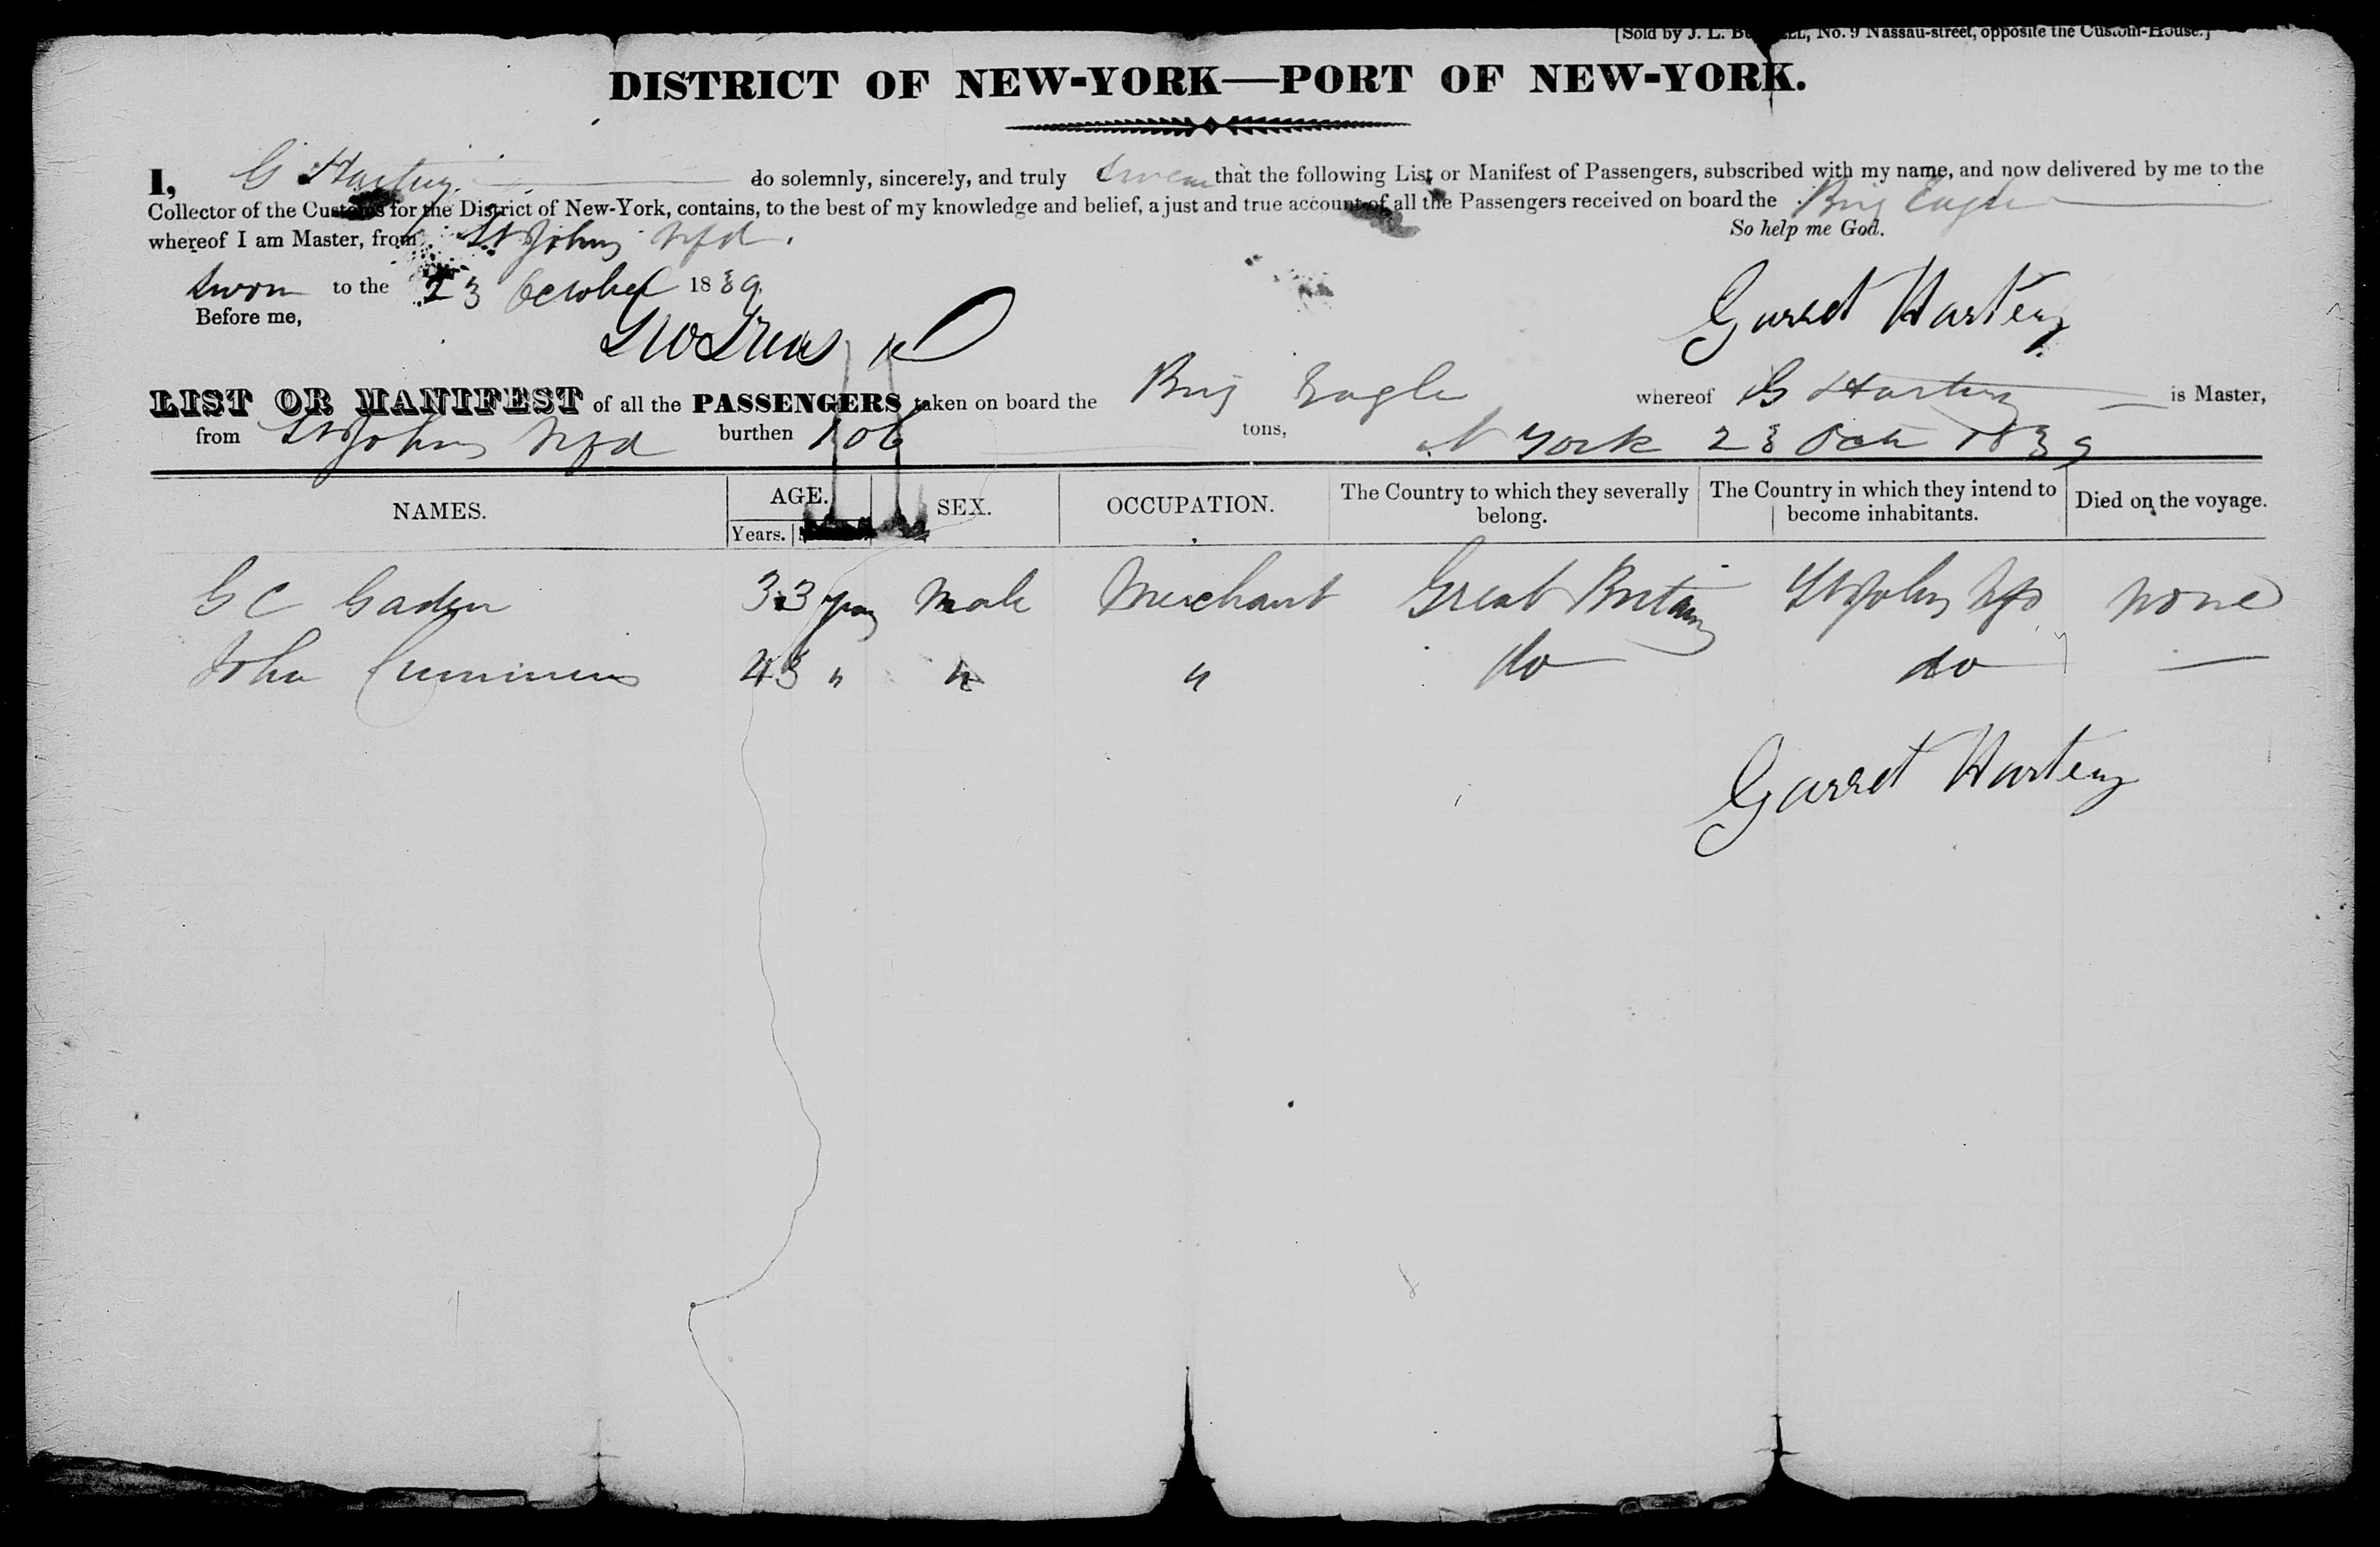 [Sold by J. L. B, No. 9 Nassau-street, opposite the Custom-House.]
DISTRICT OF NEW-YORK—PORT OF NEW-YORK.
I, G Hartery do solemnly, sincerely, and truly swear that the following List or Manifest of Passengers, subscribed with my name, and now delivered by me to the
Collector of the Customs for the District of New-York, contains, to the best of my knowledge and belief, a just and true account of all the Passengers received on board the Brig Eagle
whereof I am Master, from St Johns Nfd. So help me God.
Sworn to the 23 October 1839
Before me, Garret Hartery
LIST OR MANIFEST of all the PASSENGERS taken on board the Brig Eagle whereof G Hartery is Master,
from St Johns Nfd burthen 106 tons, N York 23 Oct 1839
NAMES. AGE. SEX. OCCUPATION. The Country to which they severally belong. The Country in which they intend to become inhabitants. Died on the voyage.
Years.
G C Gaden 33 years Male Merchant Great Britain St Johns Nfd none
John Cummins 43 " " " do do —
Garret Hartery